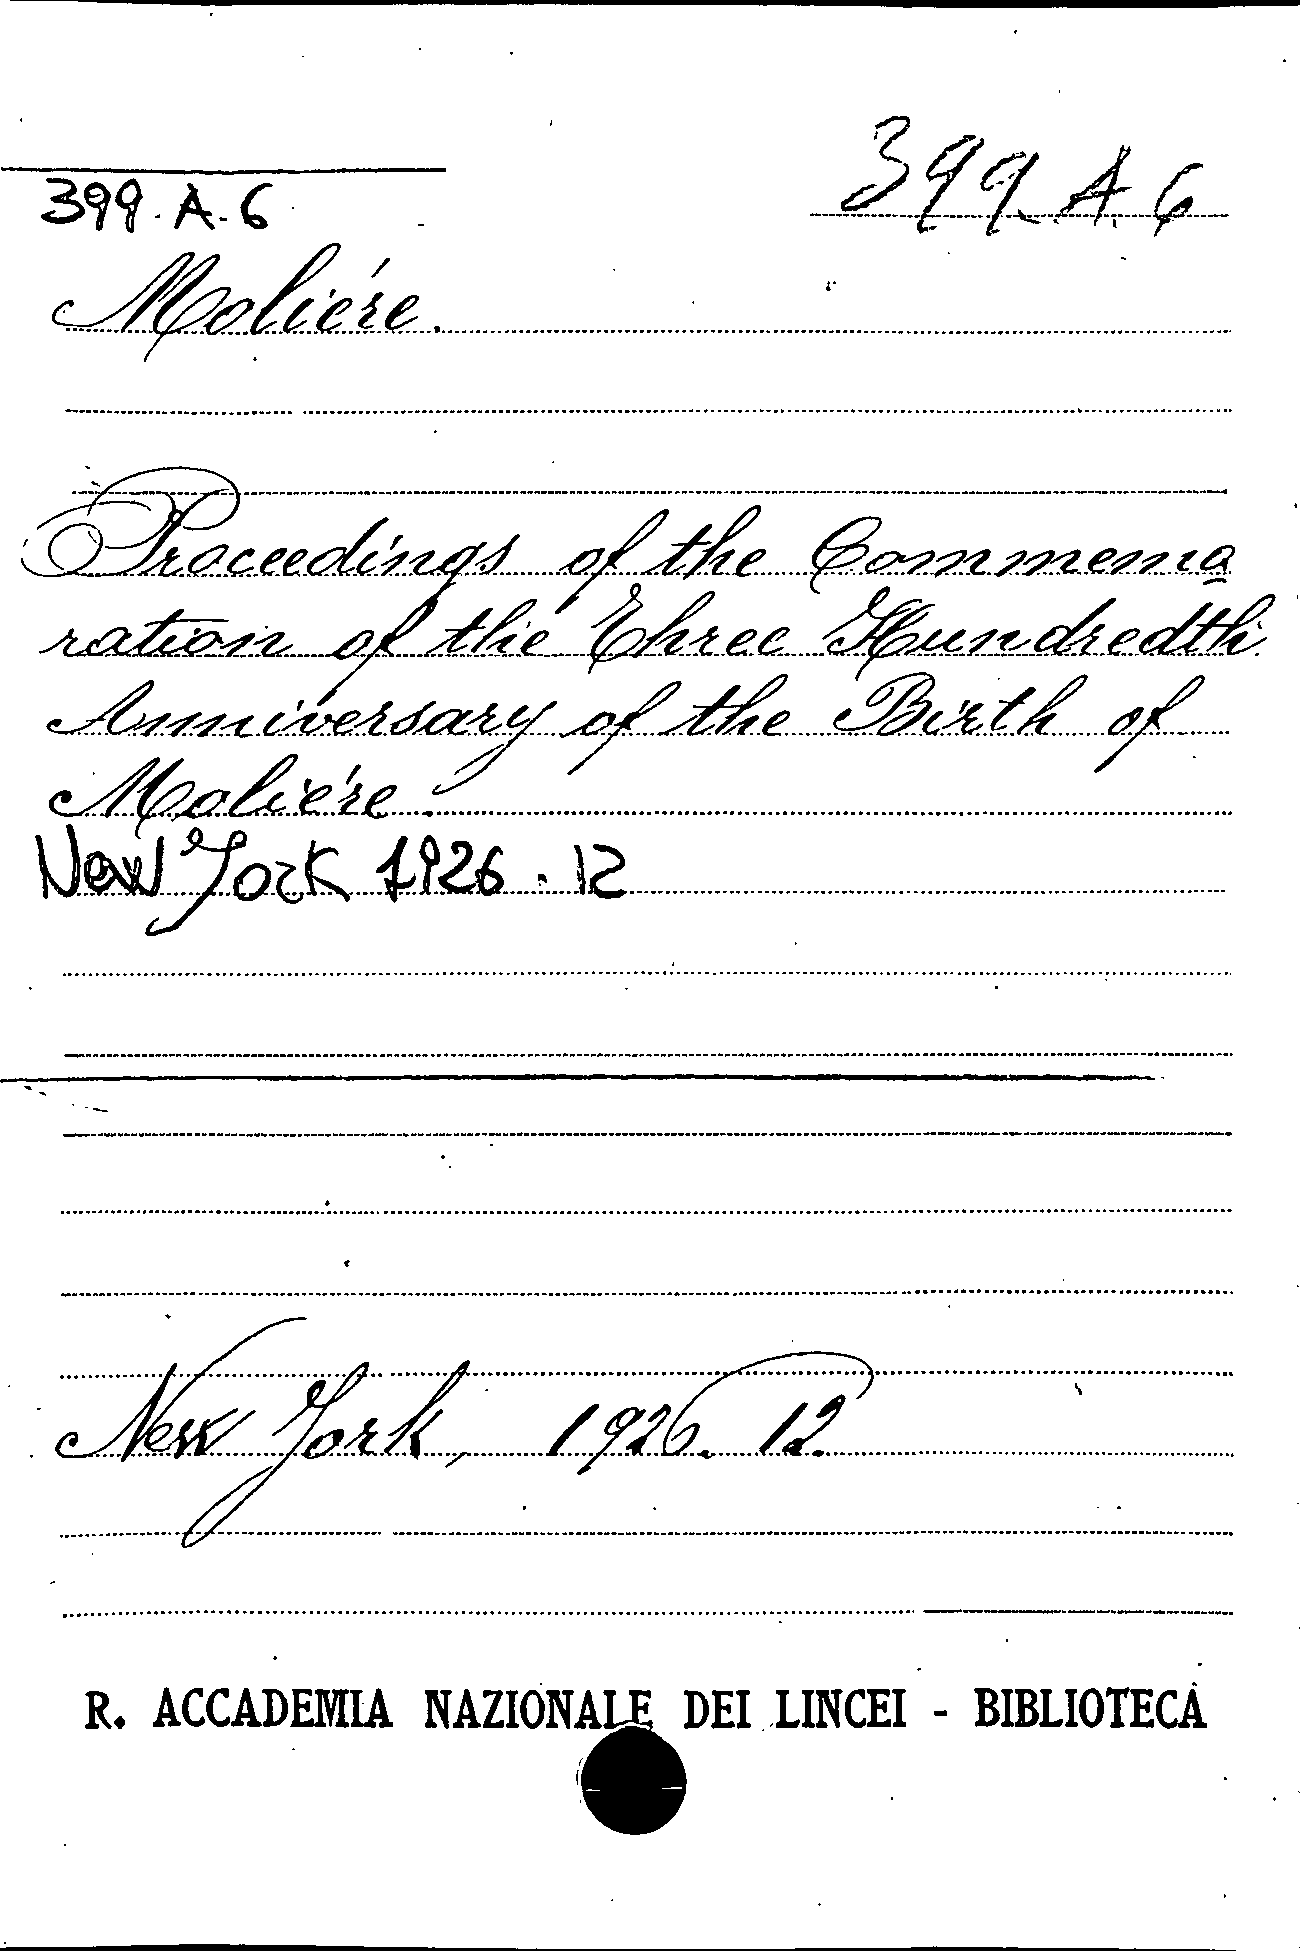 399. A. 6
399. A. 6
Moliére.
Proceedings of the Commema
ration of the Three Hundredth
Anniversary of the Birth of
Moliére.
New York 1926. 12
New York, 1926. 12.
R. ACCADEMIA NAZIONALE DEI LINCEI - BIBLIOTECA